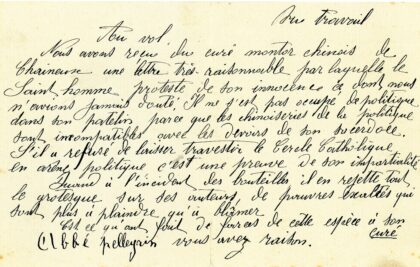 Au vol.
Nous avons reçu du curé montor chinois de
Chaineuse une lettre très raisonnable par laquelle le
Saint homme proteste de son innocence dont nous
n'avions jamais douté. Il ne s'est pas occupé de politique
dans son patelin parce que les chinoiseries de la politique
sont incompatibles avec les devoirs de son sacerdoce.
S'il a refusé de laisser travestir le Cercle Catholique
en arène politique c'est une preuve de son impartialité
à l'incident des bouteilles il en rejette tout
le grotesque sur ses auteurs, de pauvres exaltés qui
sont plus à plaindre qu'à blâmer
Est ce qu'on fait de farces de cette espèce à son
curé
L'Abbé pellegrin vous avez raison.